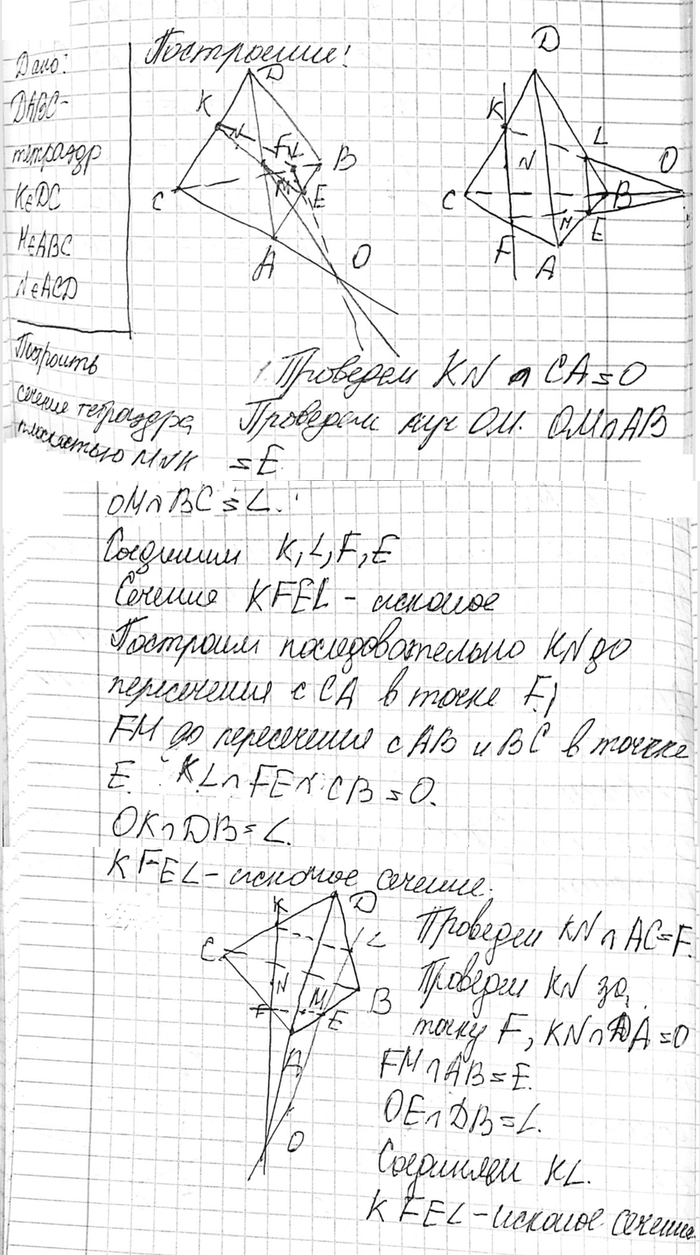 Дано:
DABC-
тетраэдр
K∈DC
M∈ABC
N∈ACD
Построить
сечение тетраэдра
плоскостью MNK
Построение!
D
K
N
F
L
B
C
M
E
A
O
D
K
L
O
N
C
B
M
E
F
A
Проведем KN ∩ CA=O
Проведем луч OM. OM∩AB
=E
OM∩BC=L.
Соединим K,L,F,E
Сечение KFEL-искомое
Построим последовательно KN до
пересечения с CA в точке F;
FM до пересечения с AB и BC в точке
E. KL∩FE∩CB=O.
OK∩DB=L.
KFEL-искомое сечение.
K
D
C
L
N
M
B
F
E
A
O
Проведем KN∩AC=F.
Проведем KN за
точку F, KN∩DA=O
FM∩AB=E.
OE∩DB=L.
Соединяем KL.
KFEL-искомое сечение